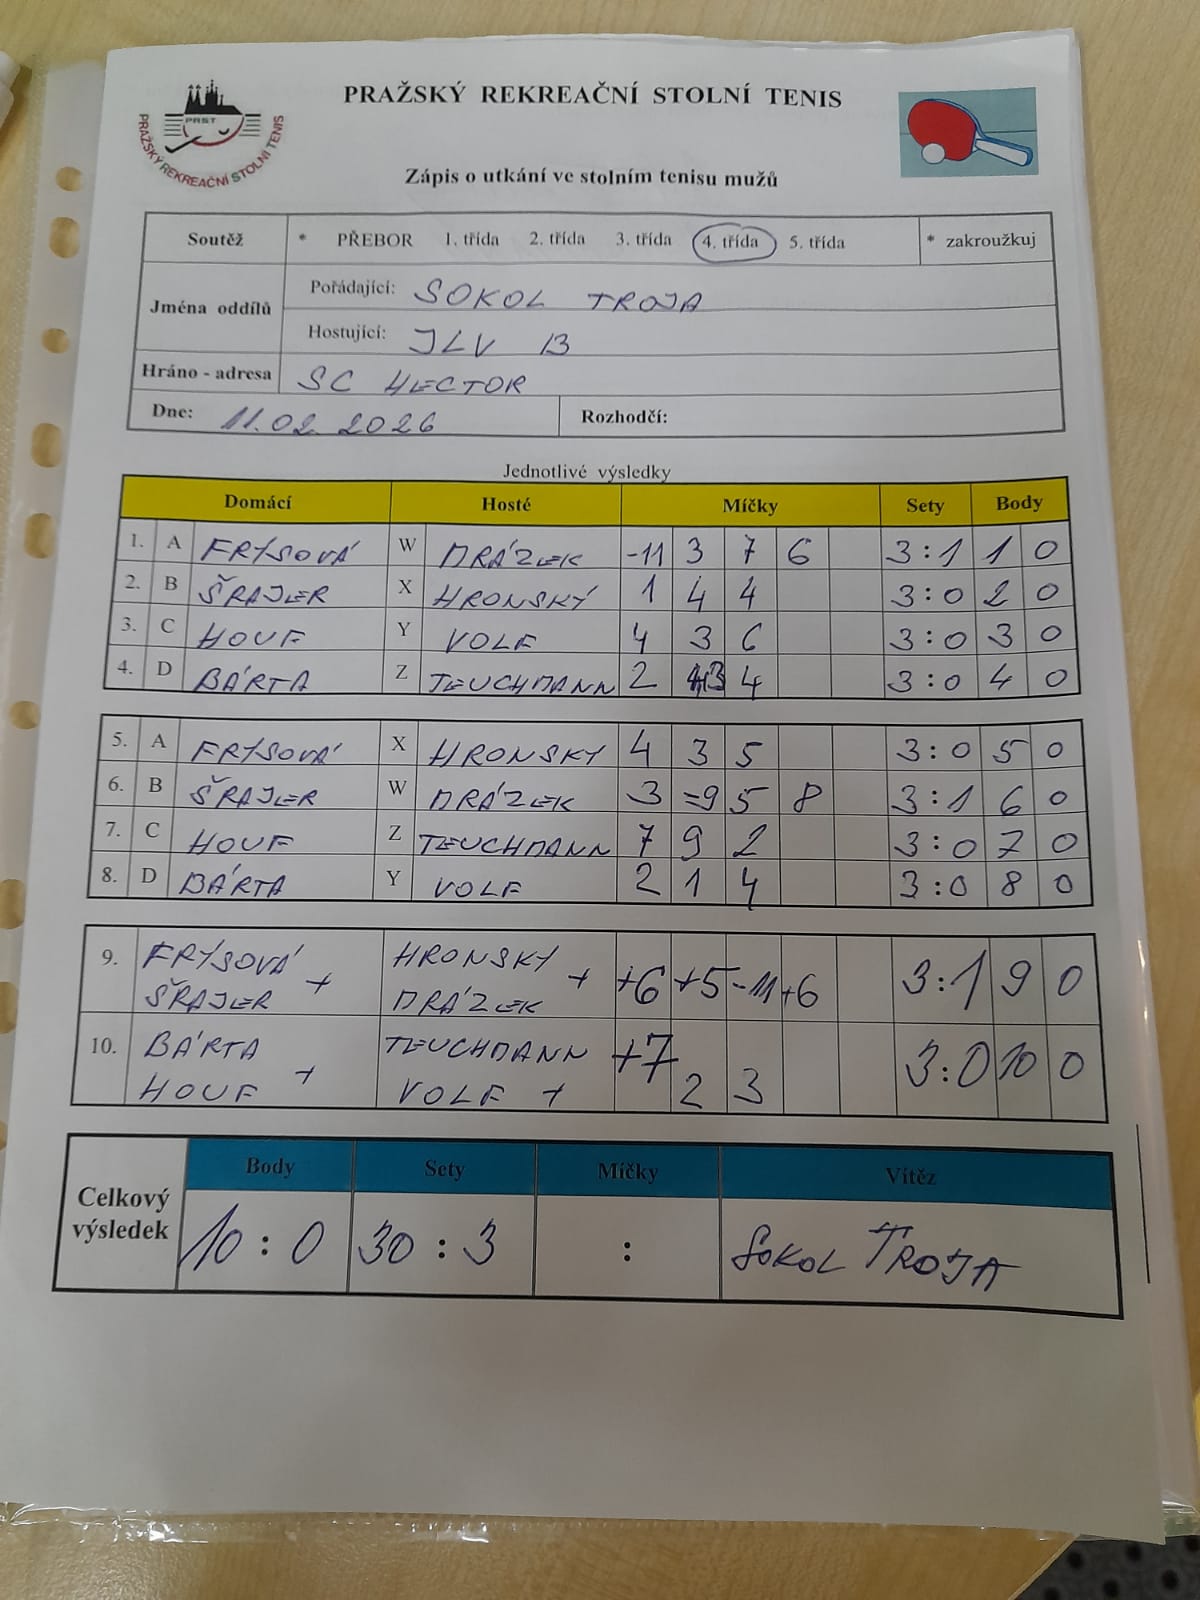 PRAŽSKÝ REKREAČNÍ STOLNÍ TENIS
PRST
PRAŽSKÝ REKREAČNÍ STOLNÍ TENIS
Zápis o utkání ve stolním tenisu mužů
Soutěž * PŘEBOR 1. třída 2. třída 3. třída 4. třída 5. třída * zakroužkuj
Jména oddílů
Pořádající: SOKOL TROJA
Hostující: JLV B
Hráno - adresa SC HECTOR
Dne: 11.02.2026 Rozhodčí:
Jednotlivé výsledky
Domácí Hosté Míčky Sety Body
1. A FRYSOVÁ W DRÁZEK -11 3 7 6 3:1 1 0
2. B ŠRAJER X HRONSKÝ 1 4 4 3:0 2 0
3. C HOUF Y VOLF 4 3 6 3:0 3 0
4. D BÁRTA Z TEUCHMANN 2 3 4 3:0 4 0
5. A FRYSOVÁ X HRONSKY 4 3 5 3:0 5 0
6. B ŠRAJER W DRÁZEK 3 -9 5 8 3:1 6 0
7. C HOUF Z TEUCHMANN 7 9 2 3:0 7 0
8. D BÁRTA Y VOLF 2 1 4 3:0 8 0
9. FRYSOVÁ + ŠRAJER HRONSKY + DRÁZEK +6 +5 -11 +6 3:1 9 0
10. BÁRTA + HOUF TEUCHMANN VOLF + +7 2 3 3:0 10 0
Celkový výsledek
Body Sety Míčky Vítěz
10 : 0 30 : 3 : SOKOL TROJA